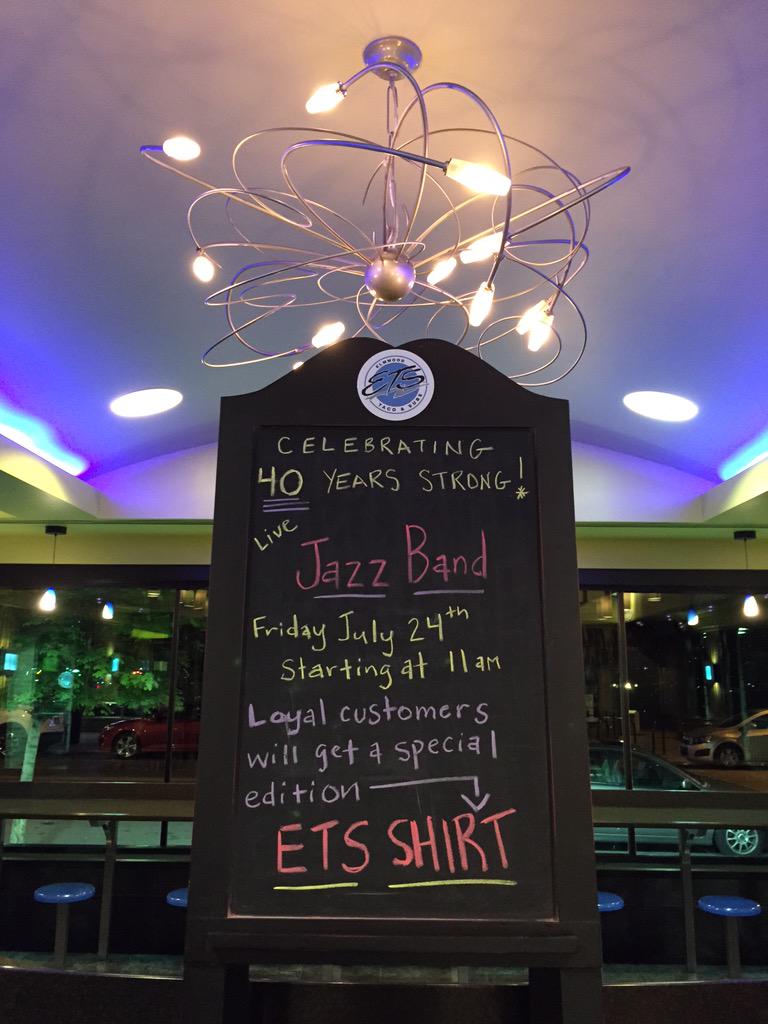 ELMWOOD
ETS
TACO & SUBS
CELEBRATING
40 YEARS STRONG!
Live
Jazz Band
Friday July 24th
Starting at 11am
Loyal customers
will get a special
edition
ETS SHIRT